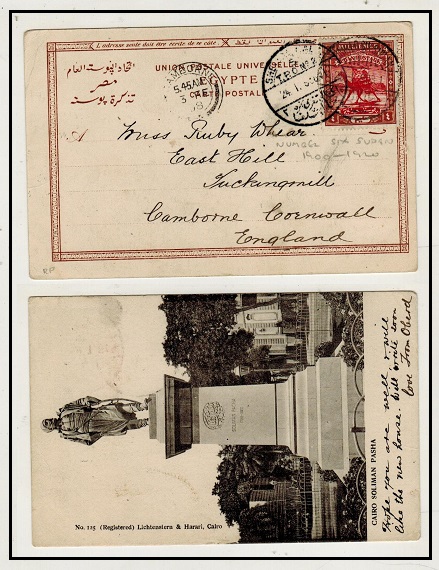 L'adresse seule doit être écrite de ce côté.
UNION POSTALE UNIVERSELLE
EGYPTE
CARTE POSTALE
اتحاد البوستة العام
مصر
تذكرة بوسته
CAMBORNE
5.45AM
MILLIEMES
4
A
Miss Ruby Whear
East Hill
Tuckingmill
Camborne Cornwall
England
NUMBER SIX SUDAN
1900-1920
RP
SOLIMAN PASHA
No. 125 (Registered) Lichtenstern & Harari, Cairo
CAIRO SOLIMAN PASHA
Hope you are well, & will
like the new house. Will write soon
love from